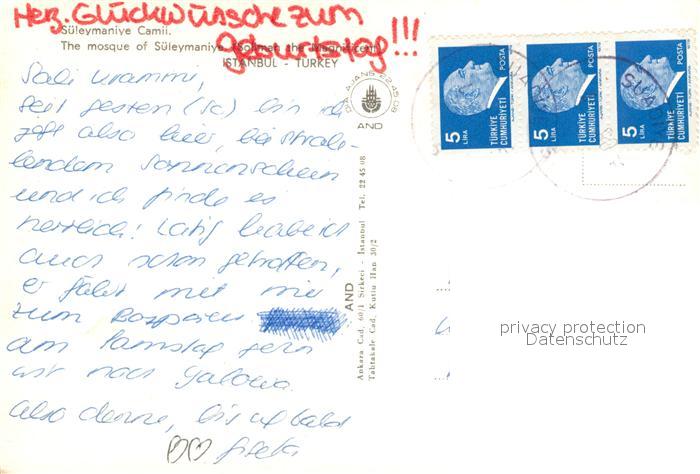 Herz. Glückwünsche zum
Geburtstag!!!
Süleymaniye Camii.
The mosque of Süleymaniye (Soliman the Magnificent)
ISTANBUL - TURKEY
Sali
seit gestern (Sa) bin ich
jetzt also hier, bei strah-
lendem Sonnenschein
und ich finde es
herrlich! Latif habe ich
auch schon getroffen,
er fährt mit mir
zum Bosporus
am Samstag fern
wir nach Yalova.
also denne, bis uf bald
AJANS 22 45 08
AND
AND
Ankara Cad. 60/1 Sirkeci - Istanbul Tel. 22 45 08
Tahtakale Cad. Kutlu Han 30/2
5 LIRA
TÜRKİYE CUMHURİYETİ
POSTA
5 LIRA
TÜRKİYE CUMHURİYETİ
POSTA
5 LIRA
TÜRKİYE CUMHURİYETİ
POSTA
privacy protection
Datenschutz